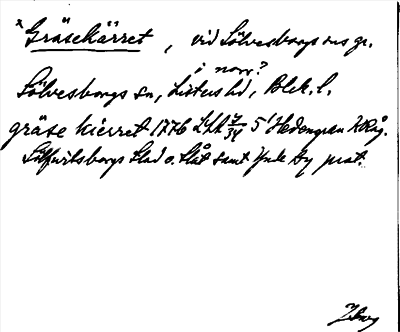 * Gräsekärret, vid Sölvesborgs ns gr.
i norr?
Sölvesborgs sn, Listers hd, Blek. l.
gräse kierret 1776 LSA 5' Hedengran
Sölfwitsborgs Stad o. Slåt samt Ynde by prot.